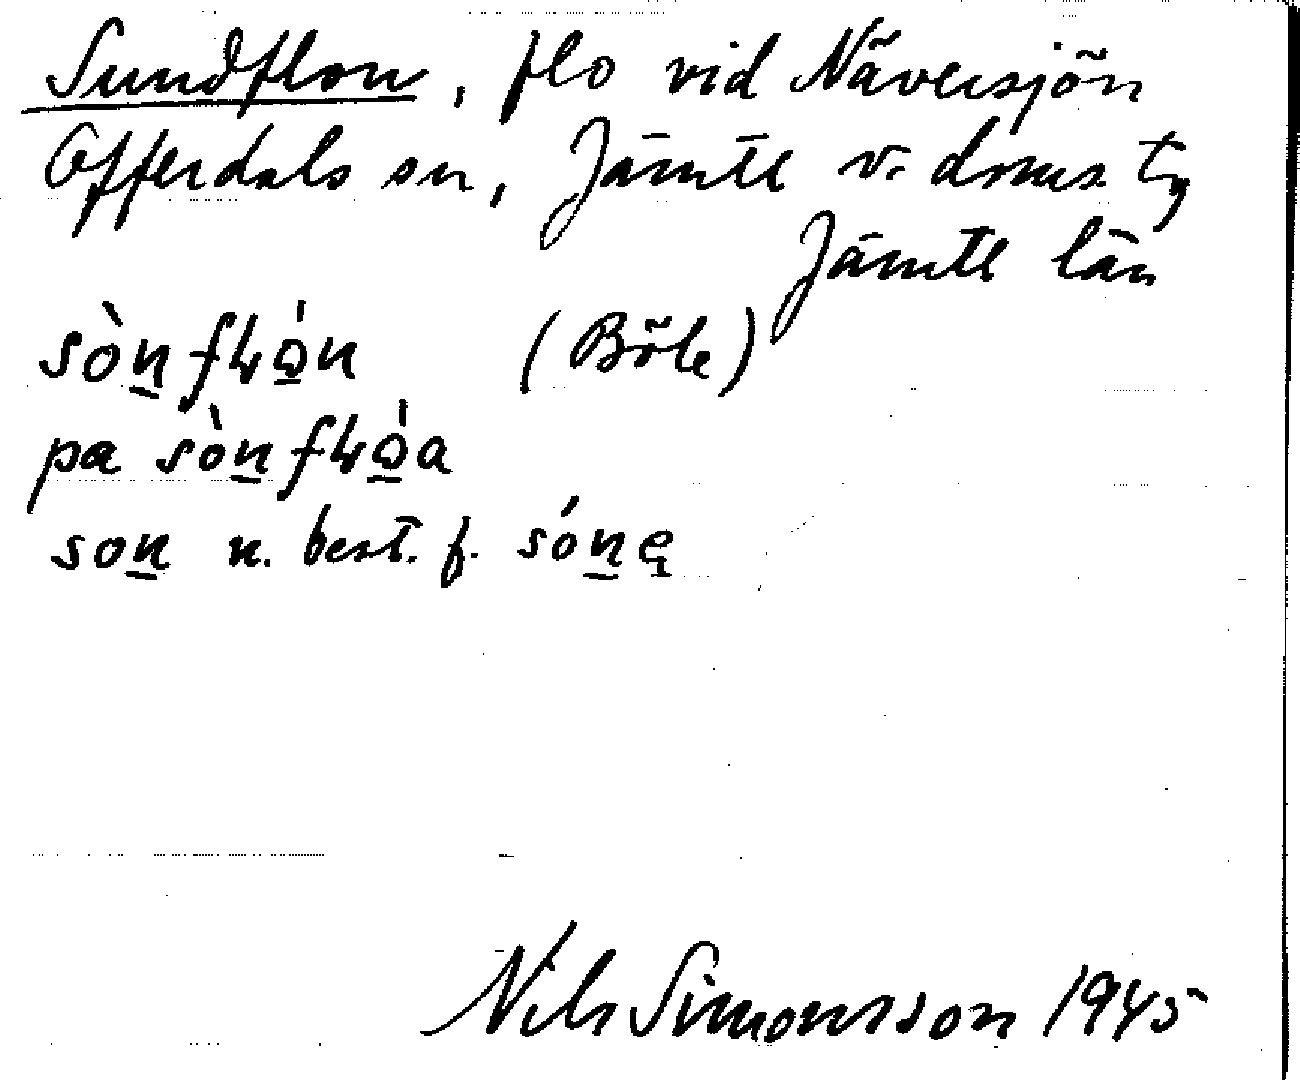 Sundflon, flo vid Näversjön
Offerdals sn, Jämtl v. doms. tg
Jämtl län
sòn̲fɬɷ̲̀n (Böle)
pa sòn̲fɬɷ̲̀a
son̲ n. best. f. són̲ę
Nils Simonsson 1945